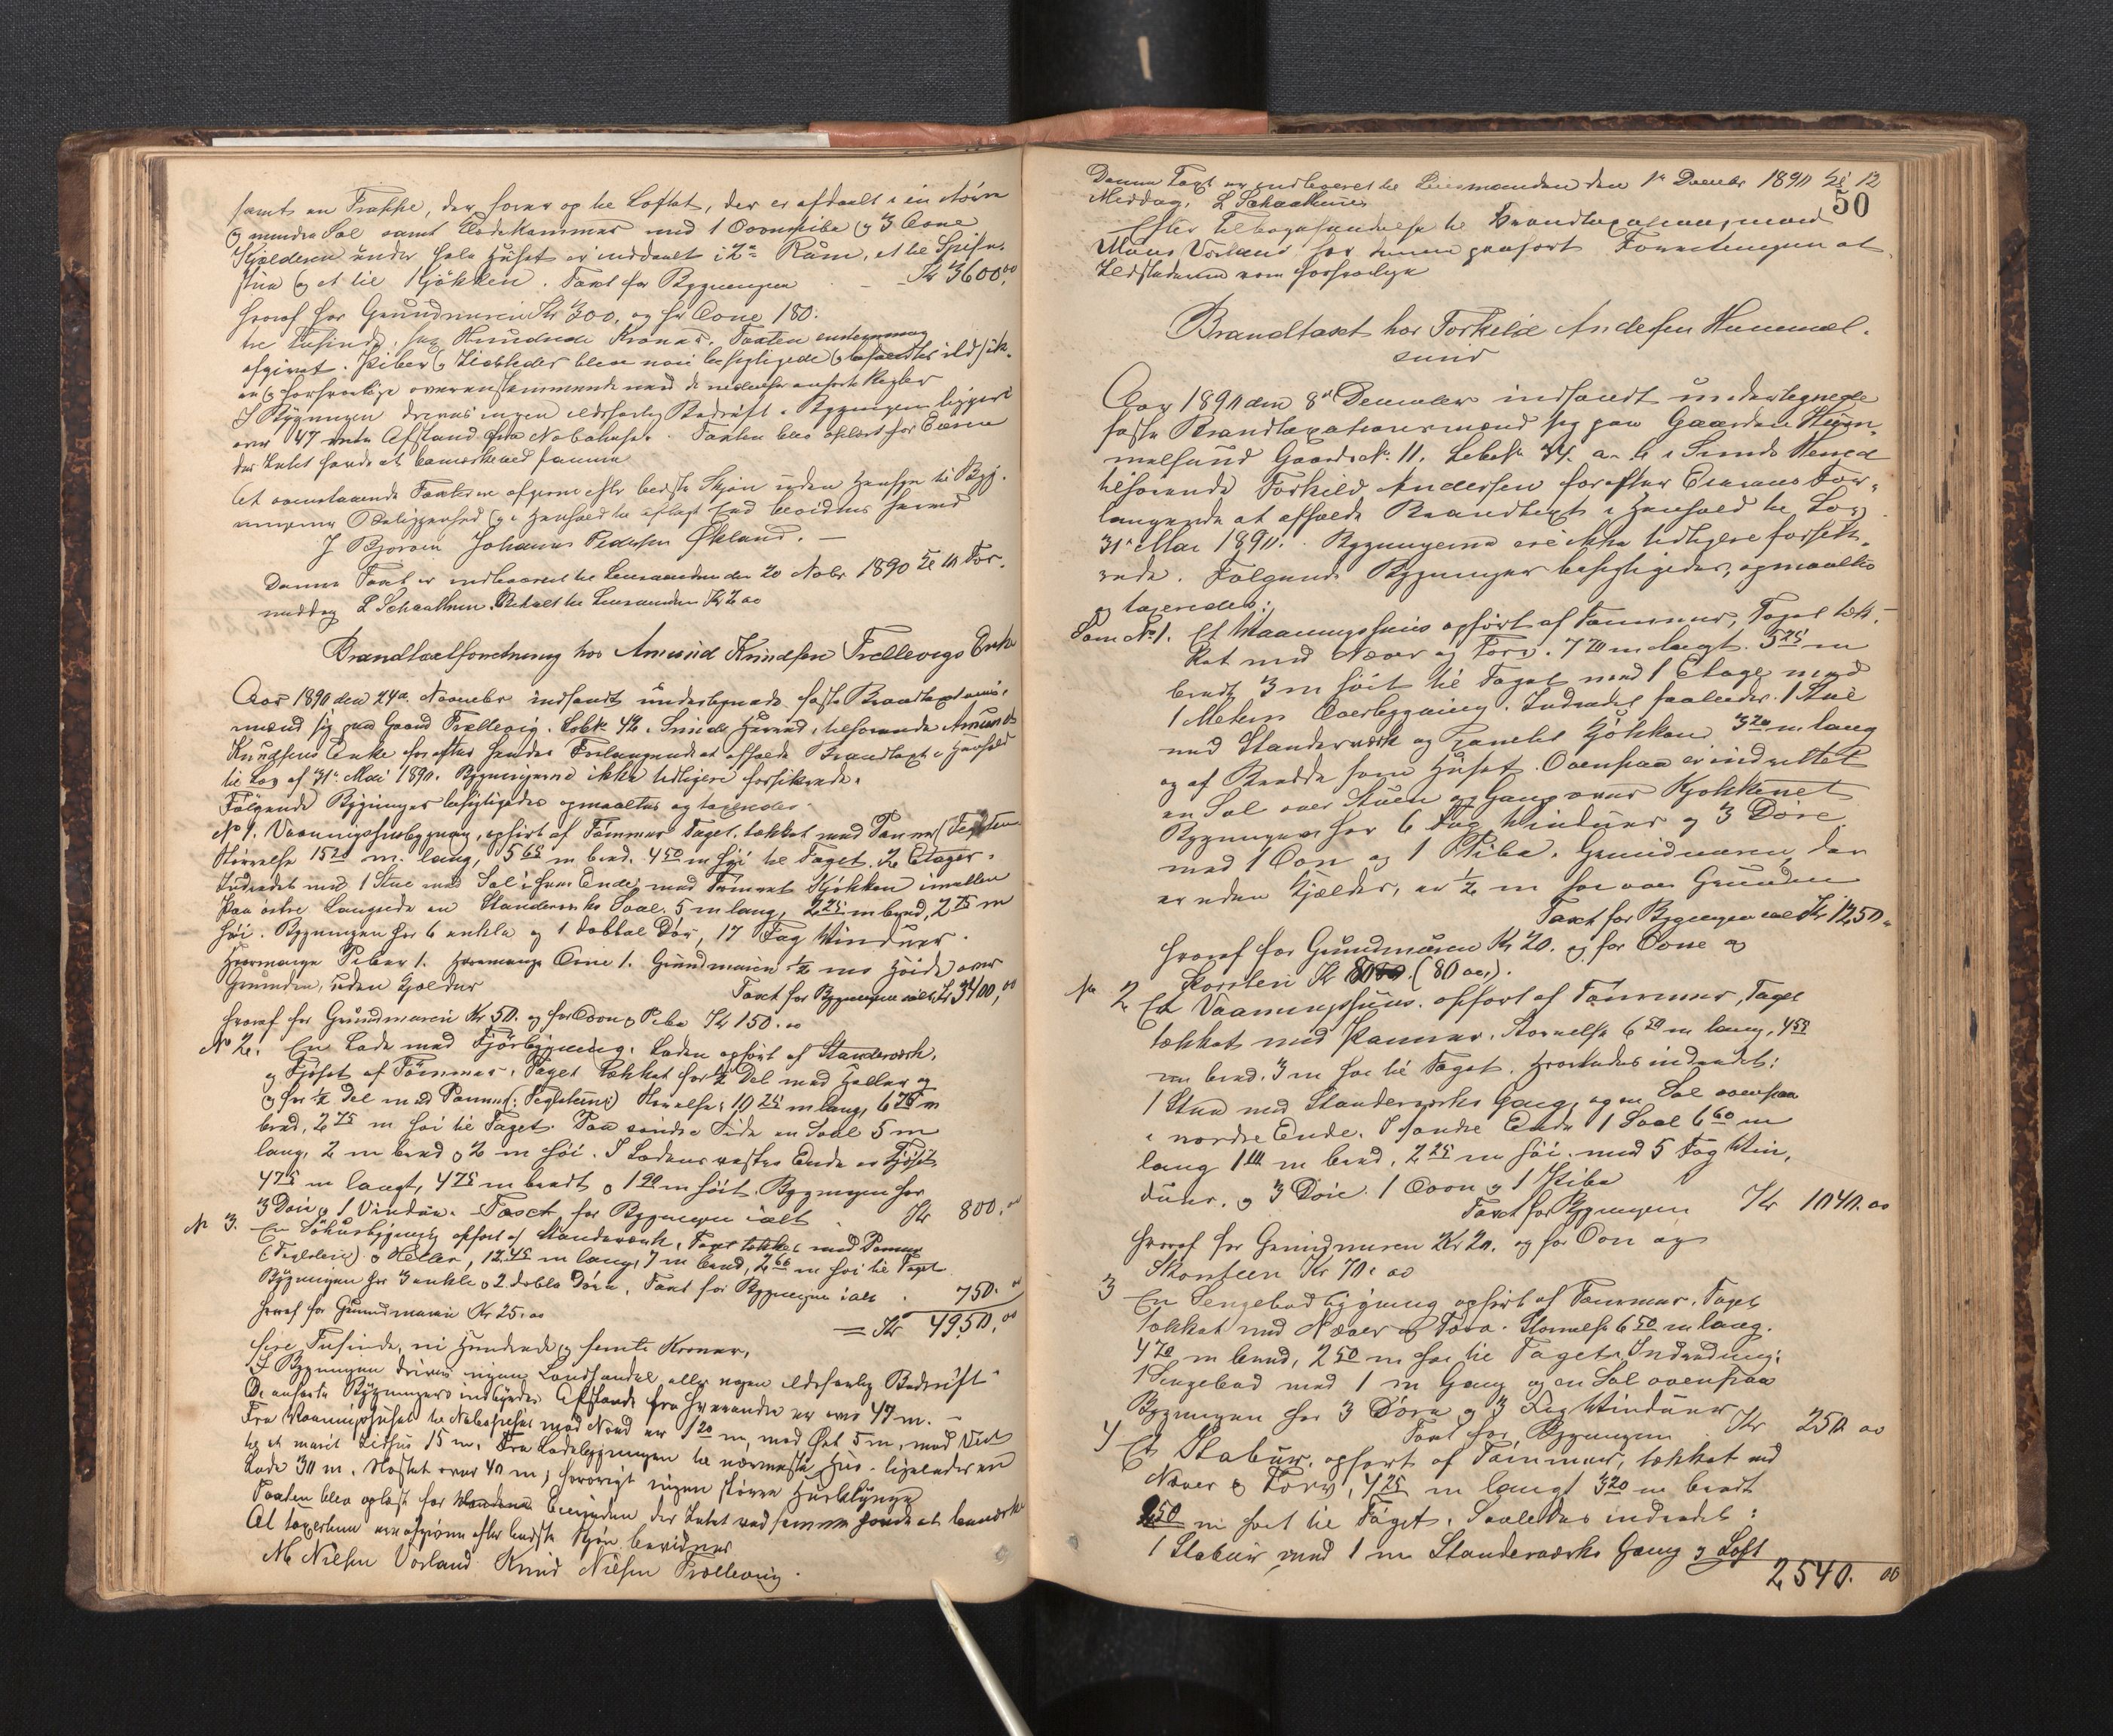 samt en Trappe, der fører op til Loftet, der er afdeelt i en større
og mindre Sal samt Klædekammer med 1 Ovnspibe og 3 Ovne
Kjælderen under hele Huset er inddeelt i 2de Rum, et til Spise-
stue og et til Kjøkken. Taxt for Bygningen - - Kr 3600,00
hvoraf for Grundmuren Kr 300, og for Ovne 180.
tre Tusinde, sex Hundrede Kroner. Taxten enstemmig
afgivet. Piber og Ildsteder bleve nøie besigtigede og befandtes ildsik-
re og forsvarlige overensstemmende med de nedenfor anførte Regler
I Bygningen drives ingen ildsfarlig Bedrift. Bygningen ligger
over 47 meter Afstand fra Nabohuse. Taxten blev oplæst for Eieren
der Intet havde at bemærke ved samme
At ovenstaaende Taxter er afgivne efter bedste Skjøn uden Hensyn til Byg-
ningernes Beliggenhed og i Henhold til aflagt Eed bevidnes herved
J Bjoroen Johannes Pedersen Økland. —
Denne Taxt er indleveret til Lensmanden den 20 Nobr 1890 Kl 10 For-
middag L Schaathun. Betalt til Lensmanden Kr 2 00
Brandtaxtforretning hos Amund Knudsen Trellevigs Enke
Aar 1890 den 24de November indfandt undertegnede faste Brandtaxations-
mænd sig paa Gaard Trællevig. Løbk 42 i Sunds Herred, tilhørende Amund
Knudsens Enke for efter hendes Forlangende at afholde Brandtaxt i Henhold
til Lov af 31te Mai 1890. Bygningerne ikke tidligere forsikrede.
Følgende Bygninger besigtigedes opmaaltes og taxeredes:
No 1. Vaaningshusbygning, opført af Tømmer Taget tækket med Panner (Teglsteen
Størrelse 15 20 m. lang, 5 65 m bred. 4 50 m høi til Taget. 2 Etager.
Indredet med 1 Stue med Sal i hver Ende, med Tømret Kjøkken imellem
Paa østre Langside en Standerverks Sval. 5 m lang, 2 25 m bred, 2 75 m
høi. Bygningen har 6 enkle og 1 dobbel Dør, 17 Fag Vinduer.
Hvormange Piber 1. Hvormange Ovne 1. Grundmuren 1/2 m Høide over
Grunden, uden Kjælder Taxt for Bygningen ialt Kr 3400,00
hvoraf for Grundmuren Kr 50. og for Ovn og Pibe Kr 150.00
No 2. En Lade med Fjøsbygning. Laden opført af Standerverk,
og Fjøset af Tømmer. Taget tækket for 1/2 Del med Heller og
og for 1/2 Del med Panner (: Teglsteen:) Størrelse: 10 25 m lang, 6 75 m
bred, 2 75 m høi til Taget. Paa søndre Side en Sval 5 m
lang, 2 m bred og 2 m høi. I Ladens vestre Ende er Fjøset
4 75 m langt, 4 75 m bredt og 1 90 m høit. Bygningen har
3 Døre og 1 Vindue. Taxt for Bygningen ialt Kr 800.00
No 3. En Søhusbygning opført af Standerverk, Taget tækket med Panner
(Teglsteen) og Heller, 12 45 m lang, 7 m bred, 2 66 m høi til Taget
Bygningen har 3 enkle og 2 doble Døre, Taxt for Bygningen ialt . 750.00
hvoraf for Grundmuren Kr 25.00
= Kr 4950,00
fire Tusinde, ni Hundrede og femti Kroner.
I Bygningen drives ingen Landhandel eller nogen ildsfarlig Bedrift.
De anførte Bygningers indbyrdes Afstande fra hverandre er over 47 m. —
Fra Vaaningshuset til Nabohuset mod Nord er 1 20 m, mod Øst 5 m, mod Vest
til et muret Ildhus 15 m. Fra Ladebygningen til nærmeste Hus - ligeledes en
Lade 30 m. Nøstet over 40 m, forøvrigt ingen større Husklynge
Taxten blev oplæst for Eierinden der Intet ved samme havde at bemærke
At taxterne ere afgivne efter bedste Skjøn bevidnes
M Nilsen Vorland Knud Nilsen Trællevig.
Denne Taxt er indleveret til Lensmanden den 1te Decembr 1890 Kl 12
Middag. L Schaathun
50
Efter Tilbagesendelse til Brandtaxationsmand
Mons Vorland har denne paaført Forretningen at
Ildstederne vare forsvarlige
Brandtaxt hos Torkild Andersen Hummel-
sund
Aar 1890 den 8de December indfandt undertegnede
faste Brandtaxationsmænd sig paa Gaarden Hum-
melsund Gaards No. 11. Løbek 34. a- b i Sunds Herred
tilhørende Torkild Andersen for efter Eierens For-
langende at afholde Brandtaxt i Henhold til Lov
31te Mai 1890. Bygningerne ere ikke tidligere forsik-
rede. Følgende Bygninger besigtigedes, opmaaltes
og taxeredes:
Som No 1. Et Vaaningshuus opført af Tømmer, Taget tæk-
ket med Næver og Torv. 7 70 m langt. 5 25 m
bredt 3 m høit til Taget med 1 Etage med
1 Meters Overbygning. Indredet saaledes. 1 Stue
med Standerværk og panelet Kjøkken 3 20 m lang
og af Bredde som Huset. Ovenpaa er indrettet
en Sal over Stuen og Gang over Kjøkkenet
Bygningen har 6 Fag Vinduer og 3 Døre
med 1 Ovn og 1 Pibe. Grundmuren, der
er uden Kjælder, er 1/2 m høi over Grunden
Taxt for Bygningen ialt Kr 1250.
hvoraf for Grundmuren Kr 20. og for Ovne og
Skorsten Kr 80 . (80 00).
No 2 Et Vaaningshuus. opført af Tømmer, Taget
tækket med Panner. Størrelse 6 50 m lang, 4 50
m bred. 3 m høi til Taget. Hvorledes indredet:
1 Stue med Standerværks Gang, og en Sal ovenpaa
i nordre Ende. I søndre Ende 1 Sval 6 60 m
lang 1 10 m bred, 2 25 m høi. med 5 Fag Vin-
duer. og 3 Døre. 1 Ovn og 1 Pibe
Taxt for Bygningen Kr 1040.00
hvoraf for Grundmuren Kr 20. og for Ovn og
Skorsteen Kr 70.00
3 En Sengebod bygning opført af Tømmer. Taget
tækket med Næver og Torv. Størrelse 6 50 m lang.
4 70 m bred, 2 50 m høi til Taget. Indredning:
1 Sengebod med 1 m Gang og en Sal ovenpaa
Bygningen har 3 Døre og 3 Fag Vinduer
Taxt for Bygningen Kr 250 00
4 Et Stabur, opført af Tømmer, tækket med
Næver og Torv, 4 25 m langt 3 20 m bredt
2 50 m høit til Taget. Saaledes indredet:
1 Stabur med 1 m Standerværks Gang og Loft
2540. 00